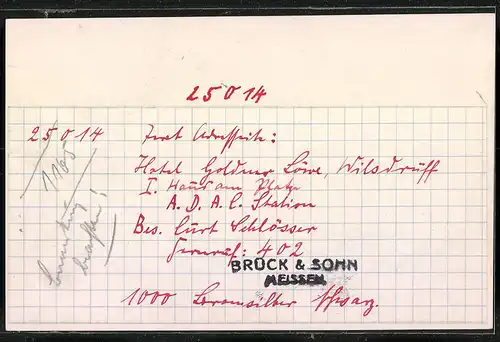 25014
25014
Text Adresseite:
Hotel Goldner Löwe, Wilsdruff
I. Haus am Platze
A. D. A. C. Station
Bes. Curt Schlösser
Fernruf: 402
BRÜCK & SOHN
MEISSEN
1000 Bromsilber schwarz.
1165